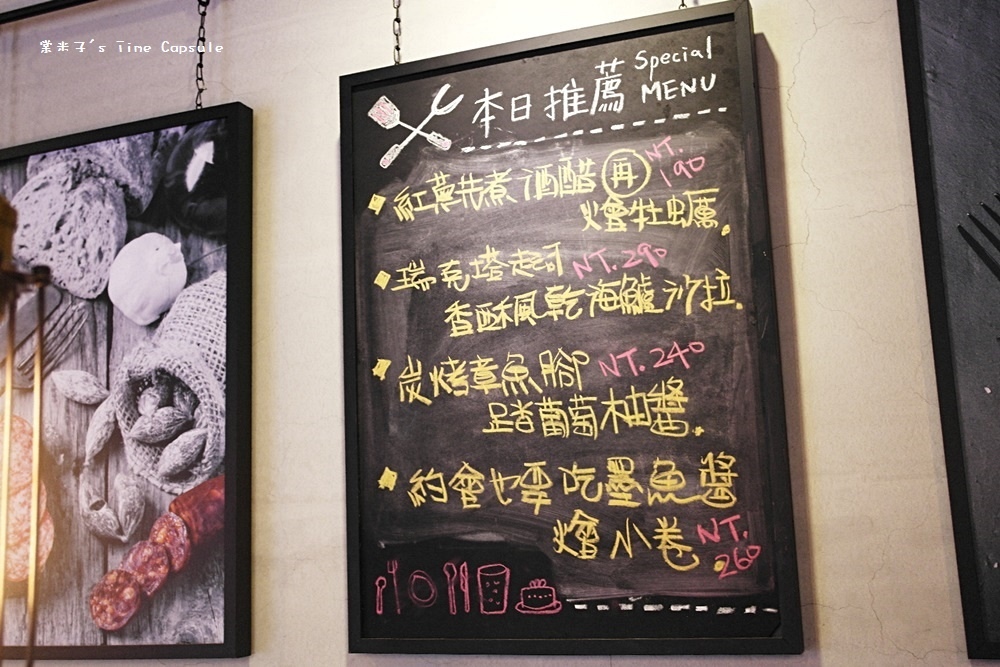 棠米子's Time Capsule
本日推薦 Special MENU
紅蔥先煮酒醋再 NT. 190
燴牡蠣。
瑞克塔起司 NT. 290
香酥風乾海鱸沙拉.
炭烤章魚腳 NT. 240
踏葡萄柚醬.
約會也要吃墨魚醬
燴小卷. NT. 260